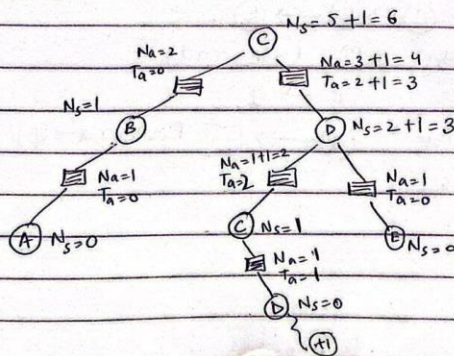 C N_s = 5 + 1 = 6
N_a = 2
T_a = 0
N_a = 3 + 1 = 4
T_a = 2 + 1 = 3
N_s = 1
B
D N_s = 2 + 1 = 3
N_a = 1
T_a = 0
N_a = 1 + 1 = 2
T_a = 2
N_a = 1
T_a = 0
A N_s = 0
C N_s = 1
E N_s = 0
N_a = 1
T_a = 1
D N_s = 0
+1